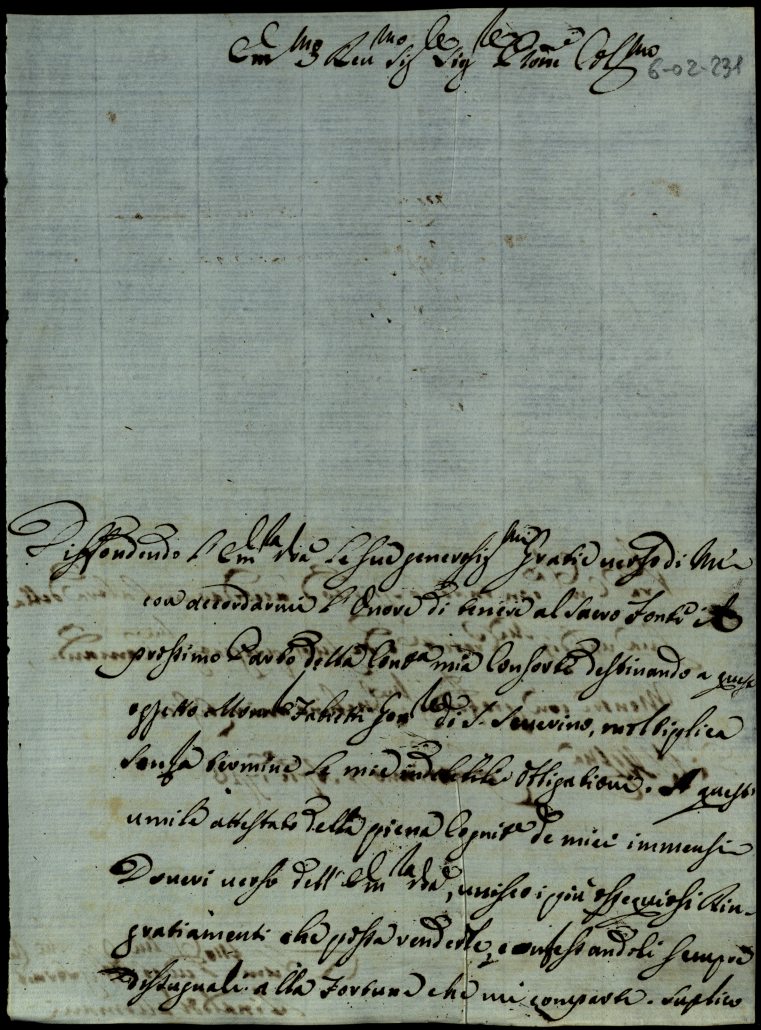 Em.mo Reu.mo Sig.re Sig.re Prone Col.mo
6-02-231
Diffondendo l'Em.za Vra le sue generosiss.me gratie uerso di Me
con accordarmi l'Onore di tenere al Sacro Fonte il
prossimo Parto della Cont.a mia Consorte destinando a quest
effetto Gov.le di S. Seuerino, moltiplica
senza termine le mie indelebili obligationi. A questo
umile attestato della piena Cognit.e de miei immensi
Doueri uerso dell'Em.za Vra, unisco i più ossequiosi Rin-
gratiamenti che possa renderle, confessandoli sempre
disuguali alla Fortuna che mi comparte. Suplico